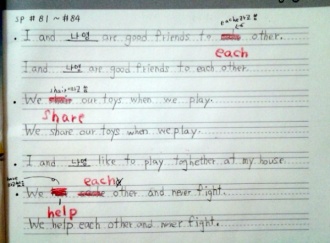 SP #81 ~ #84
• I and 나영 are good friends to other.
each
I and 나영 are good friends to each other.
• We our toys when we play.
share
We share our toys when we play.
• I and 나영 like to play toghether at my house.
each
• We other and never fight.
help
We help each other and never fight.